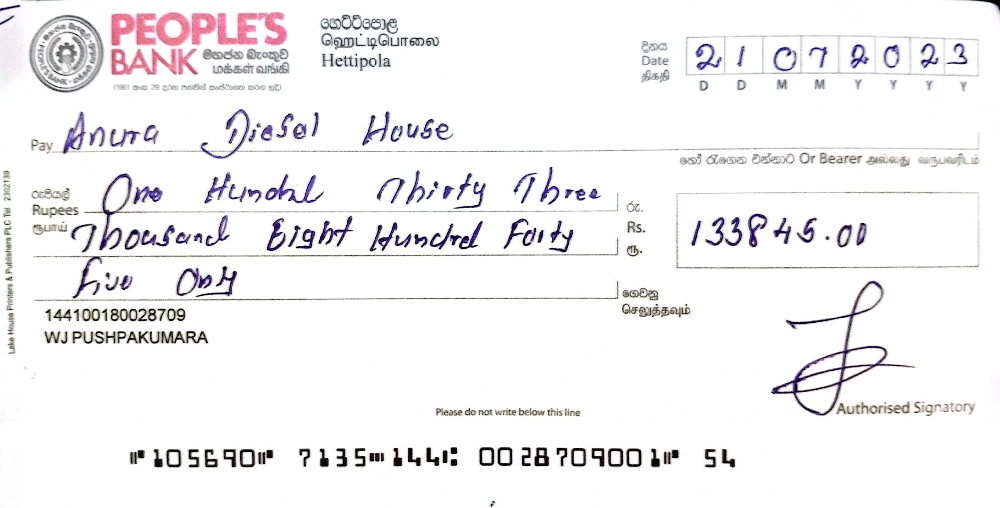 PEOPLE'S
BANK මහජන බැංකුව
மக்கள் வங்கி
(1961 අංක 29 දරන පනතින් සංස්ථාපනය කරන ලදි)
හෙට්ටිපොළ
ஹெட்டிபொலை
Hettipola
දිනය
Date
திகதி
21 07 2023
D D M M Y Y Y Y
Pay Anura Diesel House
හෝ රැගෙන එන්නාට Or Bearer அல்லது வருபவரிடம்
රුපියල්
Rupees
ரூபாய்
One Hundal Thirty Three
Thousand Eight Hundred Forty
Five Only
රු.
Rs.
ரூ.
133845.00
ගෙවනු
செலுத்தவும்
144100180028709
WJ PUSHPAKUMARA
Authorised Signatory
Please do not write below this line
⑈105690⑈ 7135⑉144⑆ 0028709001⑈ 54
Lake House Printers & Publishers PLC Tel 2302139